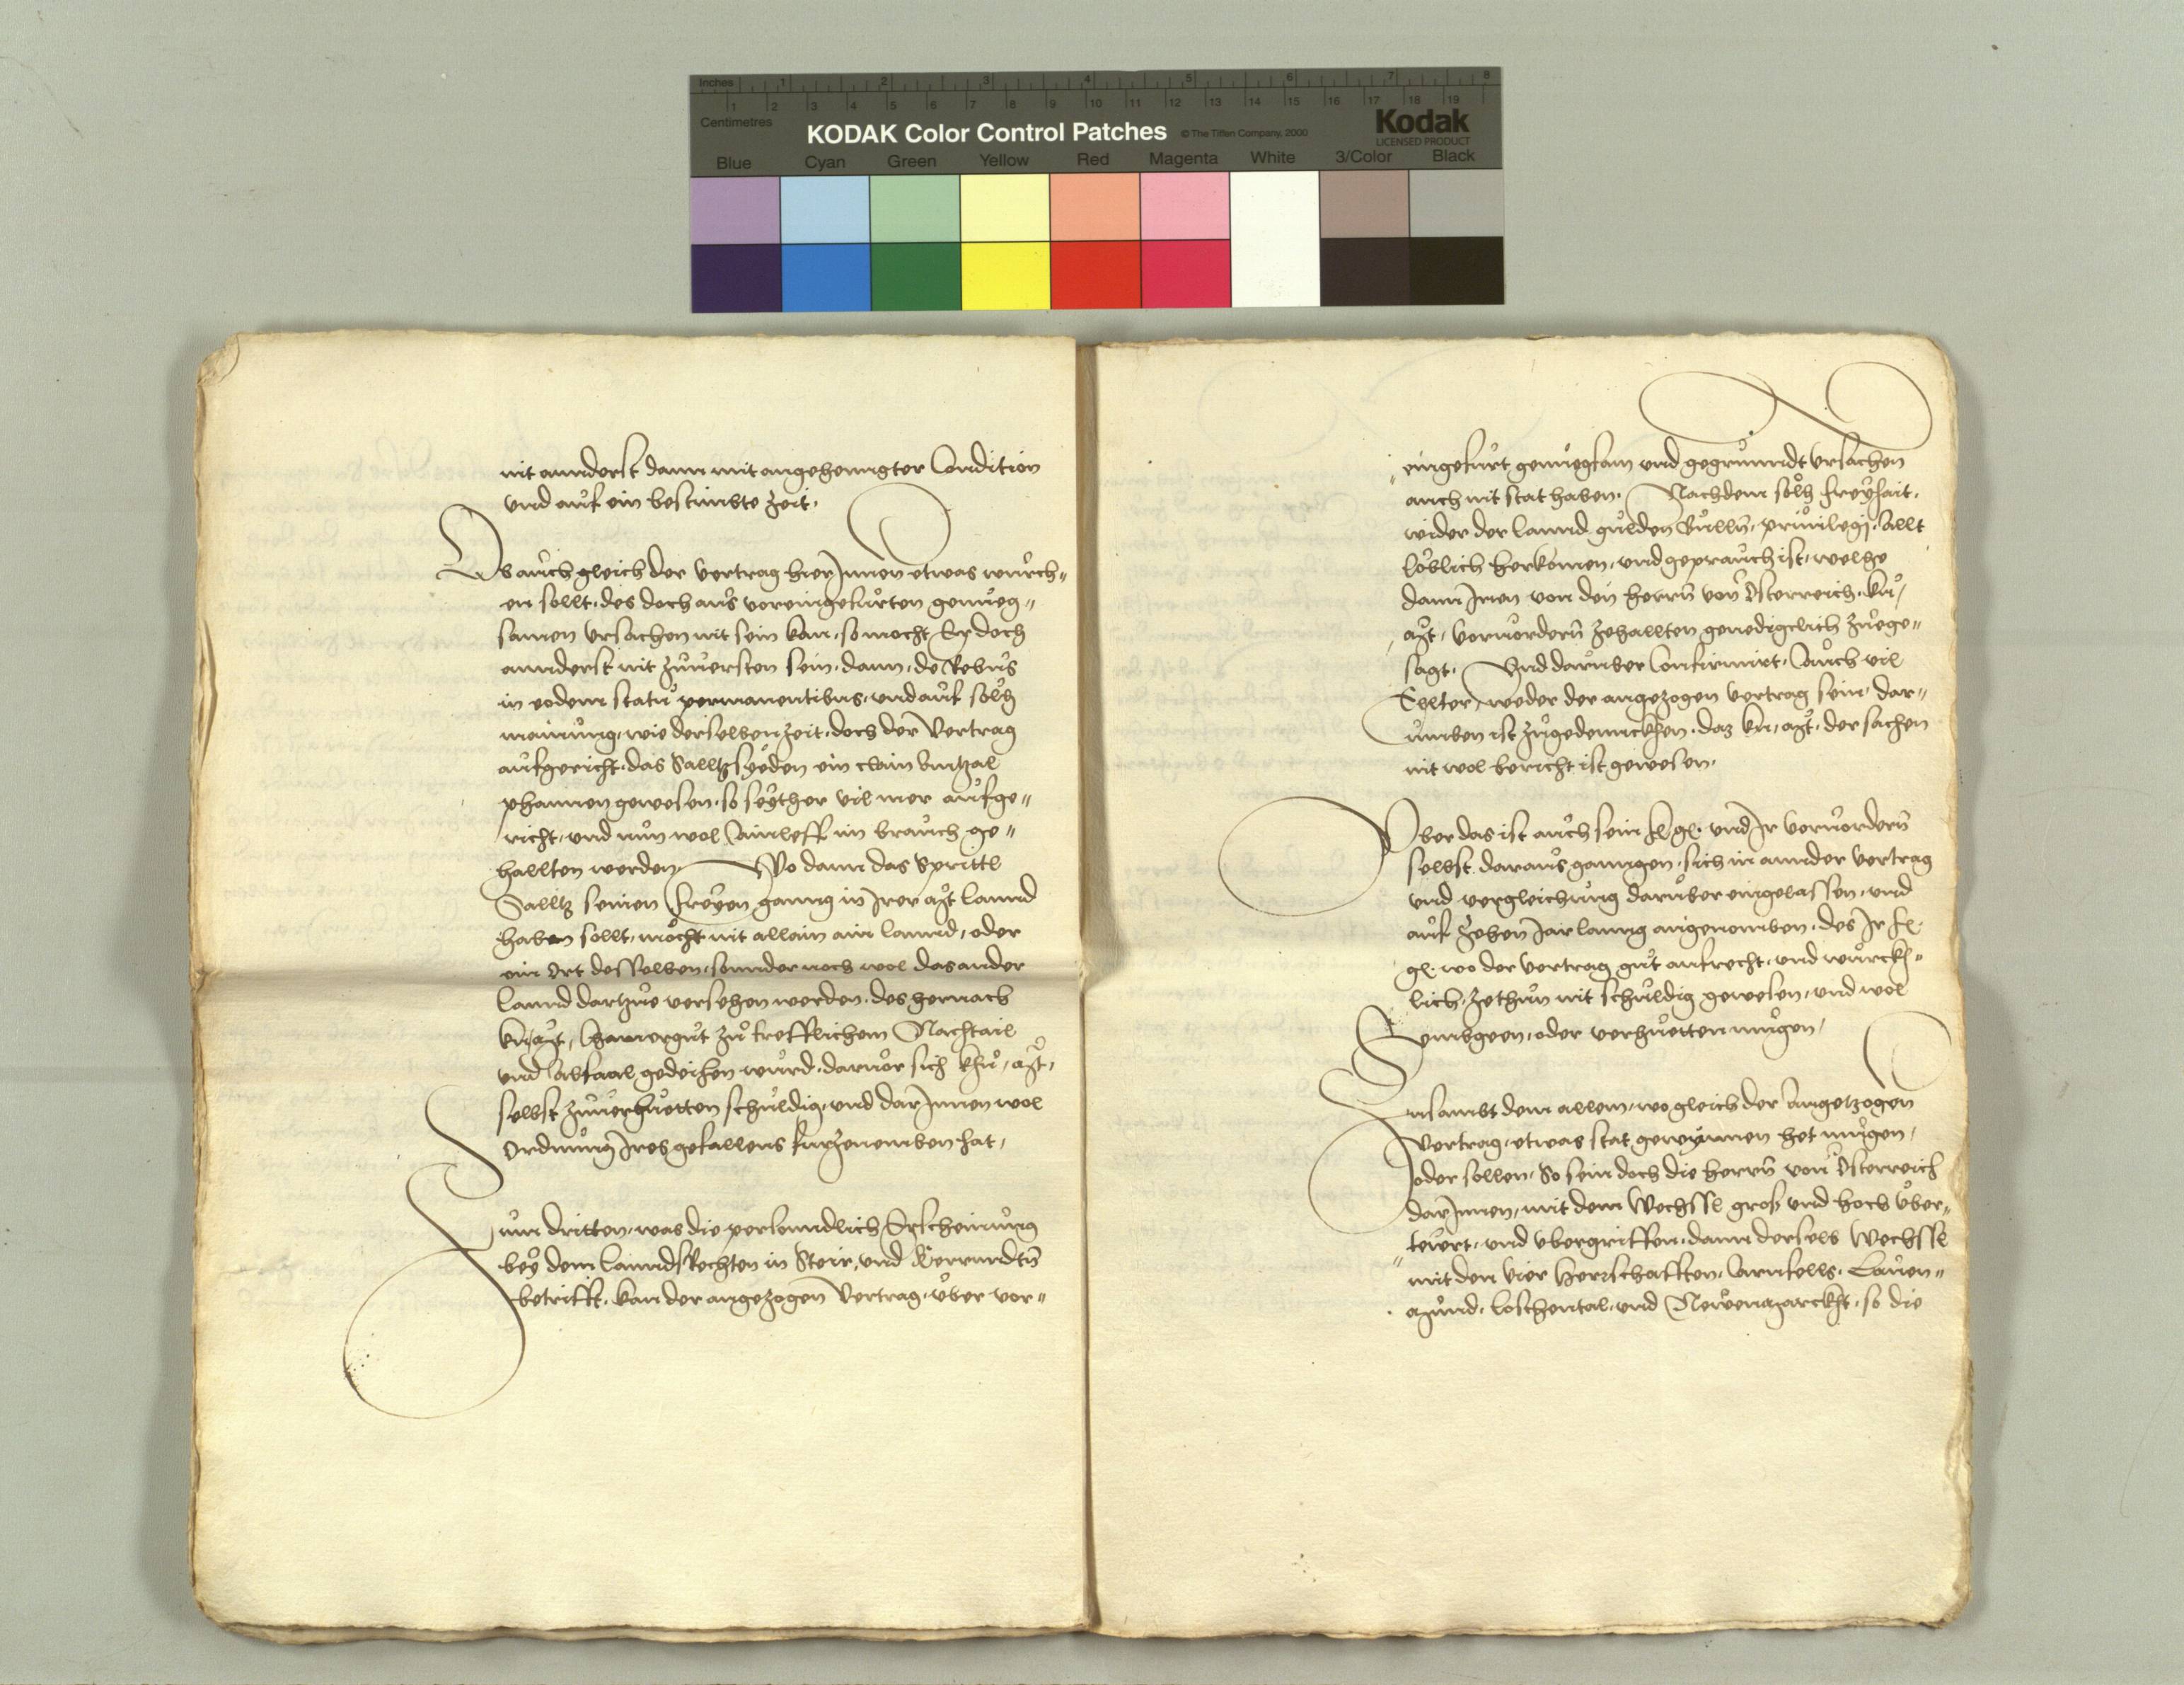 Inches 1 2 3 4 5 6 7 8
1 2 3 4 5 6 7 8 9 10 11 12 13 14 15 16 17 18 19
Centimetres
KODAK Color Control Patches © The Tiffen Company, 2000
Kodak
LICENSED PRODUCT
Blue Cyan Green Yellow Red Magenta White 3/Color Black
nit annderst dann mit angehenngter Condition
und auf ein bestimbte Zeit.
Ob auch gleich der Vertrag hierInnen etwas würch„
en sollt, des doch aus voreingefürten genueg„
samen Ursachen nit sein kan, so mocht Er doch
annderst nit zuuersten sein, dann, de Rebus
in eodem statu permanentibus, und auf solh
mainung, wie derselben Zeit, doch der Vertrag
aufgericht, das Salltzsyeden ein clain Antzal
phannen gewesen, so seyther vil mer aufge„
richt, und nun wol Aindleff im brauch ge„
hallten werden. Wo dann das
Salltz seinen freyen ganng in Irer Mt Lannd
haben sollt, möcht nit allain ain Lannd, oder
ein Ort desselben, sonnder noch wol das ander
Lannd dartzue versehen werden, des hernach
Mt, Chamergut zu trefflichem Nachtail
und Abfaal gedeihen würd, daruor sich Mt,
selbst zuuerhuetten schuldig, und darInnen wol
Ordnung Ires gefallens furzenemben hat,
Zum dritten, was die personndlich Erscheinung
bey dem LanndsRechten in Steir, und Kernndtn
betrifft, kan der angezogen Vertrag, über vor„
eingefürt genuegsam und gegrünndt Ursachen
auch nit stat haben. Nachdem solh freyhait,
wider der Lannd gulden Bulln, priuilegj, Allt
löblich herkomen, und geprauch ist, welhe
dann Inen von den herrn von Österreich,
Mt, Voruordern zehallten genedigclich zuege„
sagt. Und darüber Confirmirt, Auch vil
Elter, weder der angezogen Vertrag sein, dar„
umben ist zugedennckhen, daz Mt, der sachen
nit wol bericht ist gewesen.
Uber das ist auch sein f. g. und Ir voruordern
selbst daraus ganngen, sich in annder Vertrag
und vergleichung darüber eingelassen, und
auf Zehen Jar lanng angenomben, des Ir f.
g. wo der Vertrag gut aufrecht, und würckh„
lich, zethun nit schuldig gewesen, und wol
embgeen, oder verhuetten mügen,
Zusambt dem allem, wo gleich der Angetzogen
Vertrag, etwas stat gewynnen het mügen,
oder sollen, So sein doch die herrn von Österreich
darInnen, mit dem Wechssl groß und hoch über„
tewrt, und ubergriffen, dann derselb Wechssl
mit den vier Herrschafften, Arnfells, Lauen„
Münd, Loschental, und Newenmarckht, so die